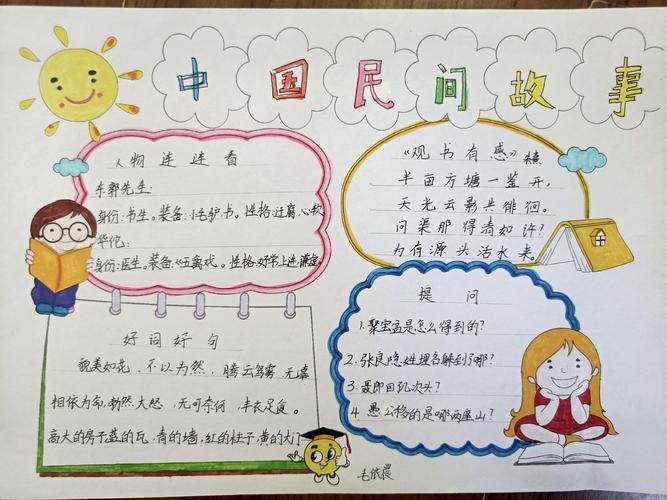 中国民间故事
人物连连看
东郭先生:
身份:书生。装备:小毛驴.书。性格:迂腐.心软
华佗:
身份:医生。装备:《五禽戏。性格:好学上进.谦虚。
好词好句
貌美如花、不以为然,腾云驾雾
相依为命,勃然大怒,无可奈何,丰衣足食。
高大的房子蓝的瓦,青的墙,红的柱子,黄的大门
《观书有感》
半亩方塘一鉴开,
天光云影共徘徊。
问渠那得清如许?
为有源头活水来。
提问
1.聚宝盆是怎么得到的?
2.张良隐姓埋名躲到了哪?
3.聂郎回几次头?
4 愚公移的是哪两座山?